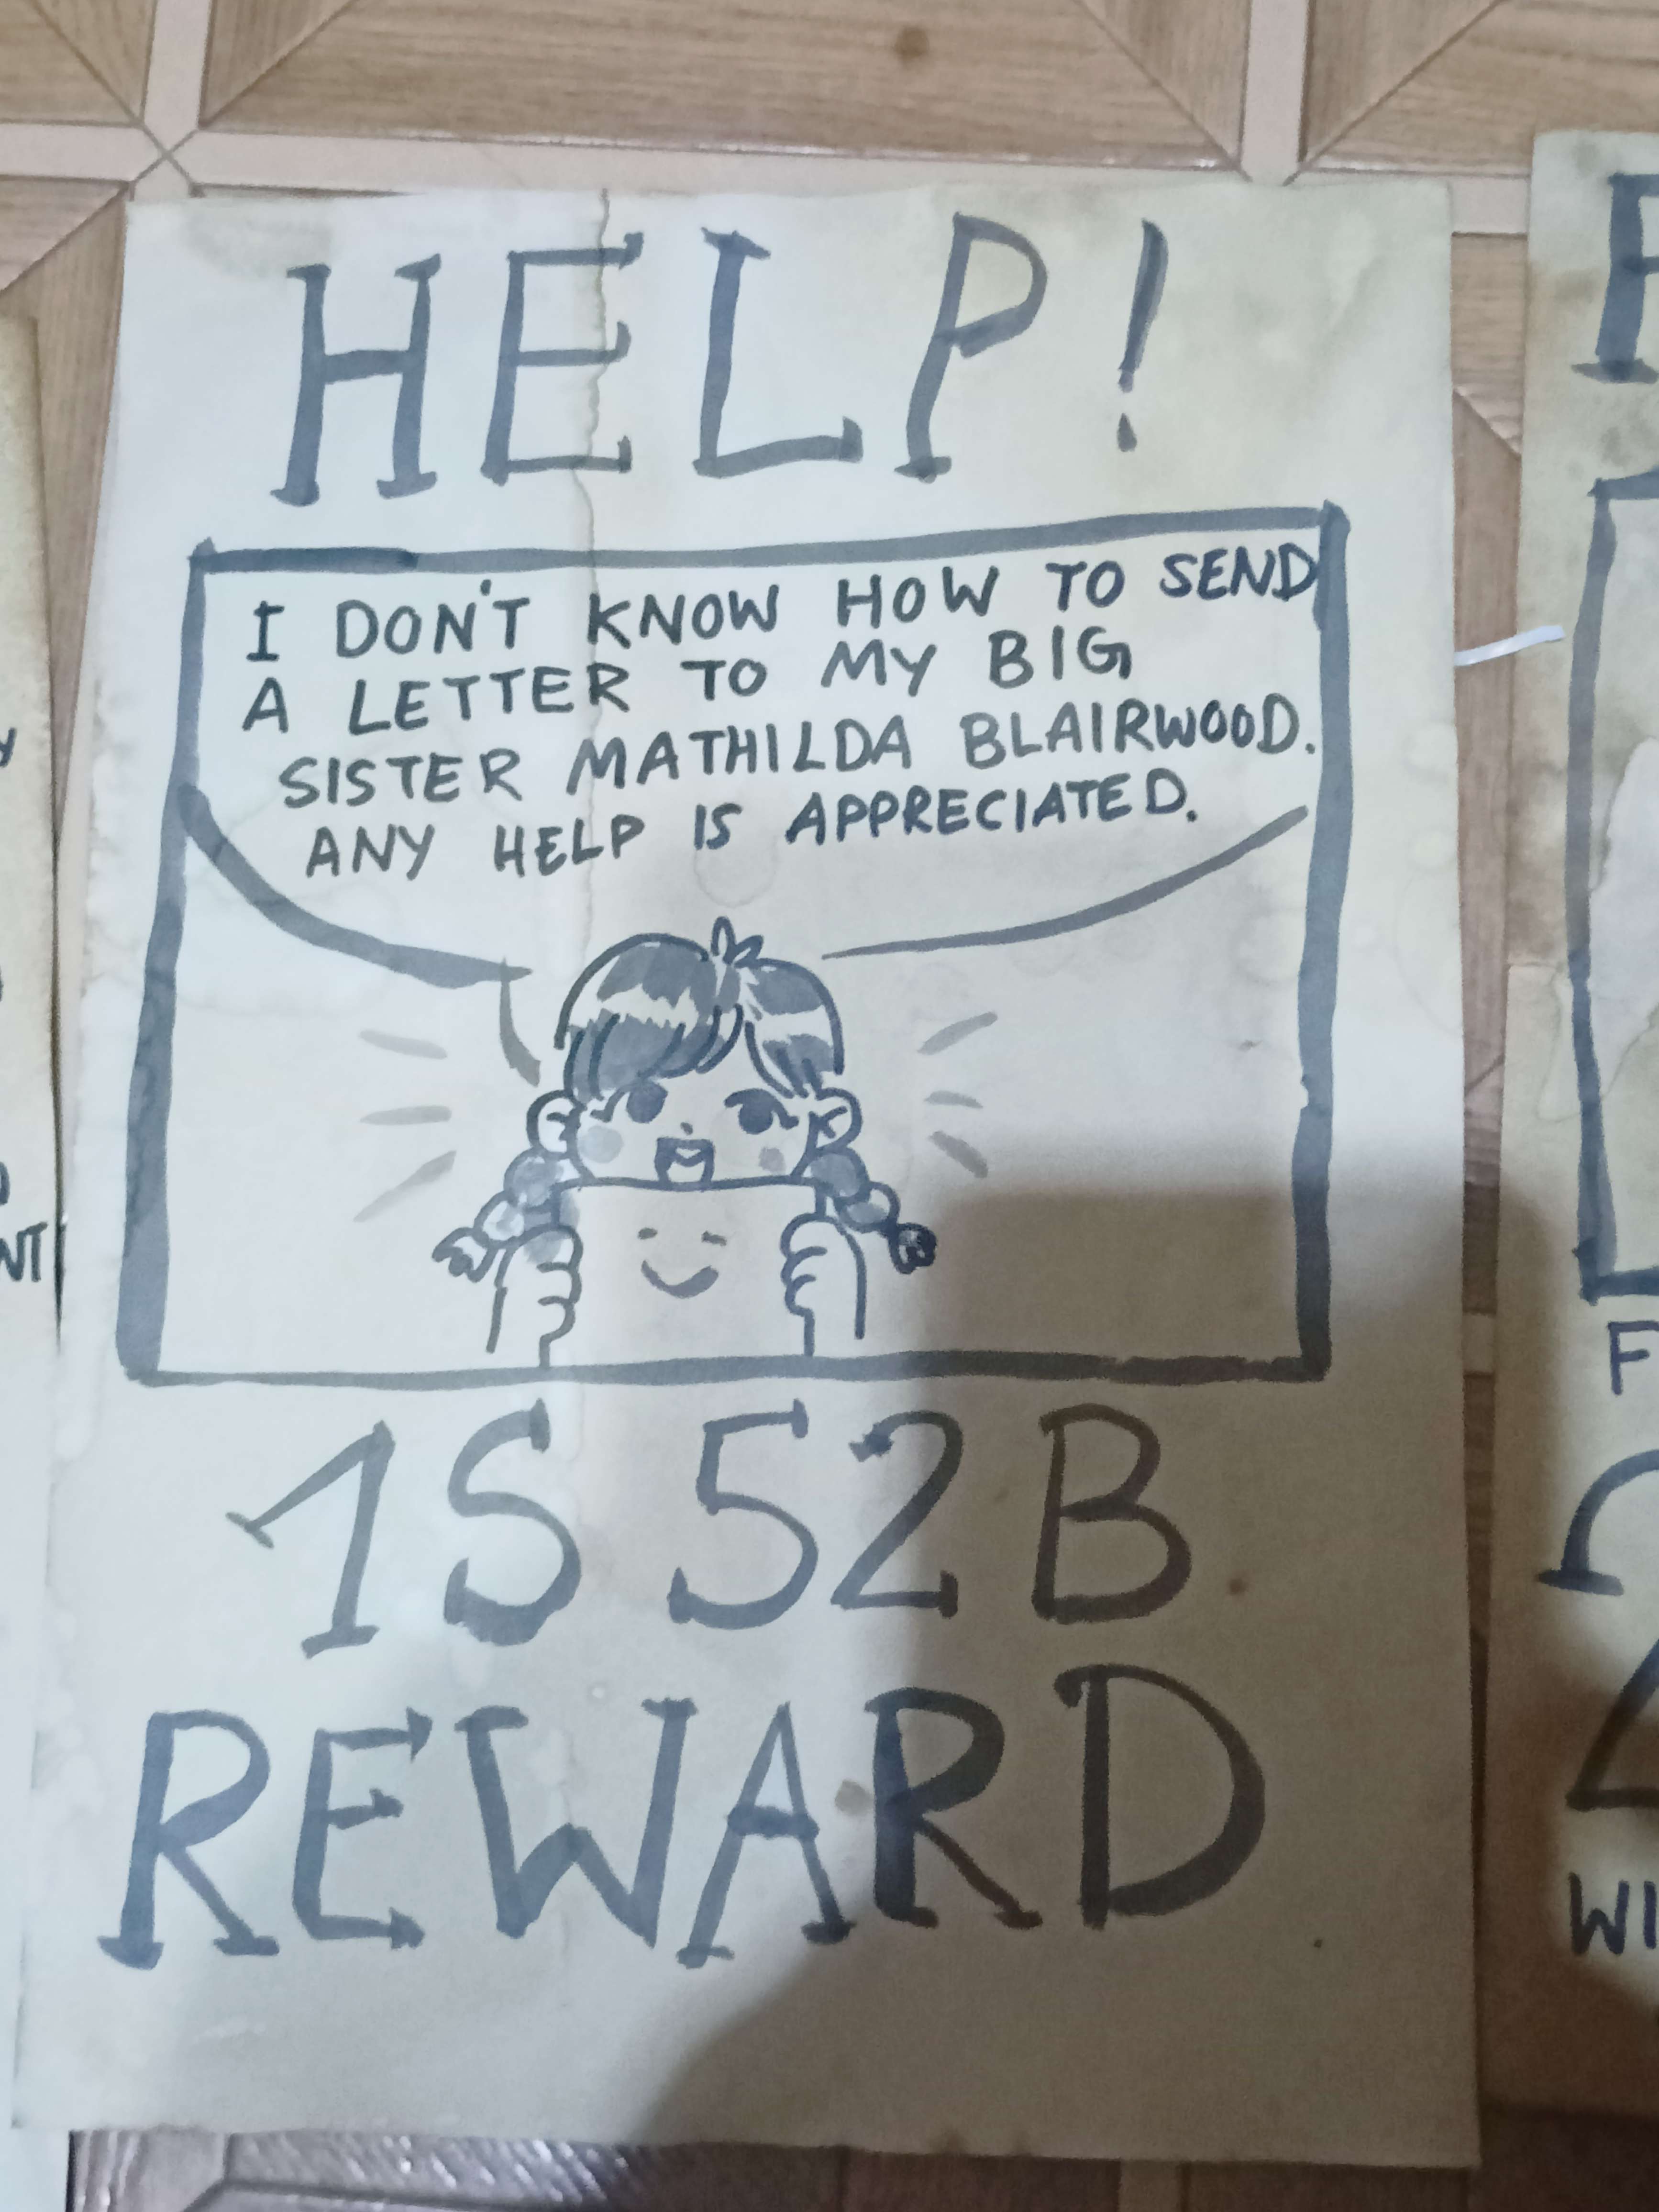 HELP!
I DON'T KNOW HOW TO SEND
A LETTER TO MY BIG
SISTER MATHILDA BLAIRWOOD.
ANY HELP IS APPRECIATED.
1S 52B
REWARD